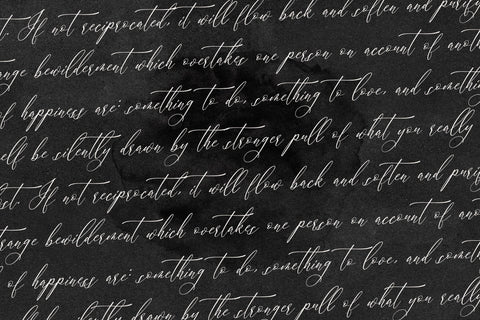 t. If not reciprocated, it will flow back and soften and purify
range bewilderment which overtakes one person on account of anot
of happiness are: something to do, something to love, and somethin
elf be silently drawn by the stronger pull of what you really
ost. If not reciprocated, it will flow back and soften and purif
trange bewilderment which overtakes one person on account of ano
of happiness are: something to do, something to love, and somethin
elf be silently drawn by the stronger pull of what you really